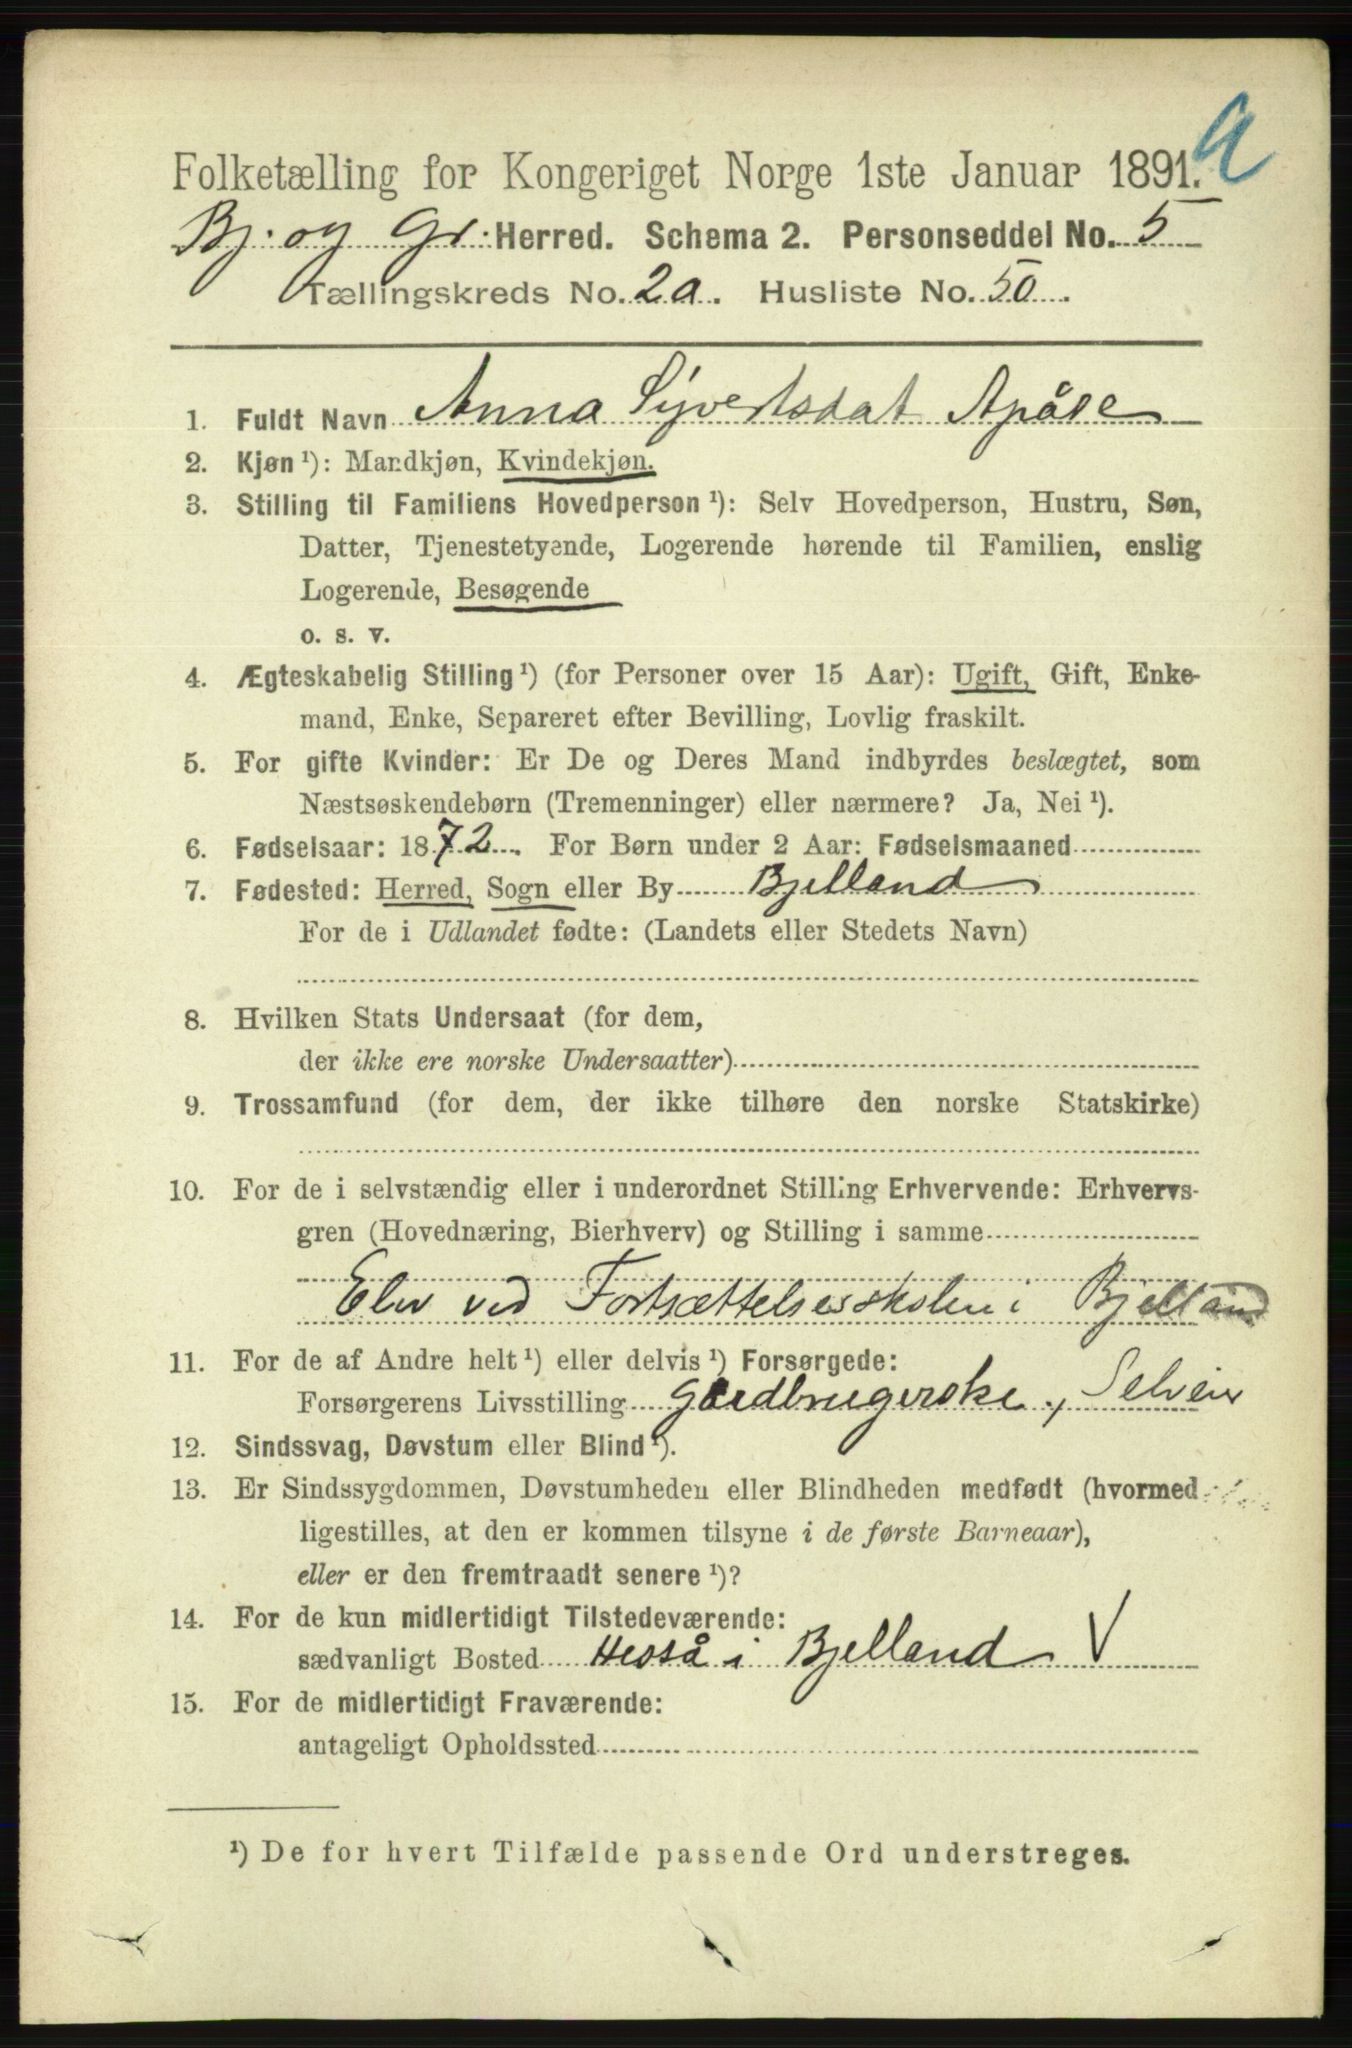 a
Folketælling for Kongeriget Norge 1ste Januar 1891.
Bj. og Gr. Herred. Schema 2. Personseddel No. 5
Tællingskreds No. 2a. Husliste No. 50.
1. Fuldt Navn Anna Syvertsdat Apåse
2. Kjøn ¹): Mandkjøn, Kvindekjøn.
3. Stilling til Familiens Hovedperson ¹): Selv Hovedperson, Hustru, Søn,
Datter, Tjenestetyende, Logerende hørende til Familien, enslig
Logerende, Besøgende
o. s. v.
4. Ægteskabelig Stilling ¹) (for Personer over 15 Aar): Ugift, Gift, Enke-
mand, Enke, Separeret efter Bevilling, Lovlig fraskilt.
5. For gifte Kvinder: Er De og Deres Mand indbyrdes beslægtet, som
Næstsøskendebørn (Tremenninger) eller nærmere? Ja, Nei ¹).
6. Fødselsaar: 1872. For Børn under 2 Aar: Fødselsmaaned
7. Fødested: Herred, Sogn eller By Bjelland
For de i Udlandet fødte: (Landets eller Stedets Navn)
8. Hvilken Stats Undersaat (for dem,
der ikke ere norske Undersaatter)
9. Trossamfund (for dem, der ikke tilhøre den norske Statskirke)
10. For de i selvstændig eller i underordnet Stilling Erhvervende: Erhvervs-
gren (Hovednæring, Bierhverv) og Stilling i samme
Elev ved Fortsættelsesskolen i Bjelland
11. For de af Andre helt ¹) eller delvis ¹) Forsørgede:
Forsørgerens Livsstilling Gardbrugerske, Selveier
12. Sindssvag, Døvstum eller Blind ¹).
13. Er Sindssygdommen, Døvstumheden eller Blindheden medfødt (hvormed
ligestilles, at den er kommen tilsyne i de første Barneaar),
eller er den fremtraadt senere ¹)?
14. For de kun midlertidigt Tilstedeværende:
sædvanligt Bosted Heså i Bjelland V
15. For de midlertidigt Fraværende:
antageligt Opholdssted
¹) De for hvert Tilfælde passende Ord understreges.